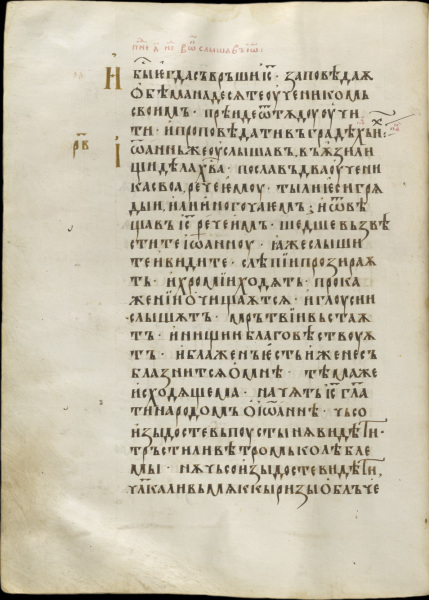 И бꙑ егда съврьши іс҃ · заповѣдаѩ
обѣманадесѧте оученикома
своимъ · прѣиде ѿтѫдоу оучи
ти · и проповѣдати въ градѣхъ и
рв҃ І ѡаннъ же оуслꙑшавъ въ ѫзили
щи дѣла хв҃а · посълавъ два оучени
ка своѧ, рече емоу · тꙑ ли еси грѧ
дꙑи, или иного чаемъ ; и ѿвѣ
щавъ іс҃ рече имъ · шедше възвѣ
стите іѡанноу · ꙗже слꙑши
те и видите · слѣпии прозираѭ
тъ · и хромии ходѧтъ · прока
жении очищаѭтсѧ · и глоусии
слꙑшѧтъ · мрътвии въстаѭ
тъ · и нищии благовѣствоуѭ
тъ · и блаженъ естъ иже не съ
блазнитсѧ о мнѣ · тѣма же
исходѧщема · начѧтъ іс҃ гл҃а
ти народомъ о іѡаннѣ · чьсо
изꙑдосте въ поустꙑнѭ видѣти ·
тръсти ли вѣтромъ колѣбае
мꙑ · нѫ чьсо изꙑдосте видѣти,
чл҃ка ли въ мѧккꙑ ризꙑ облъче